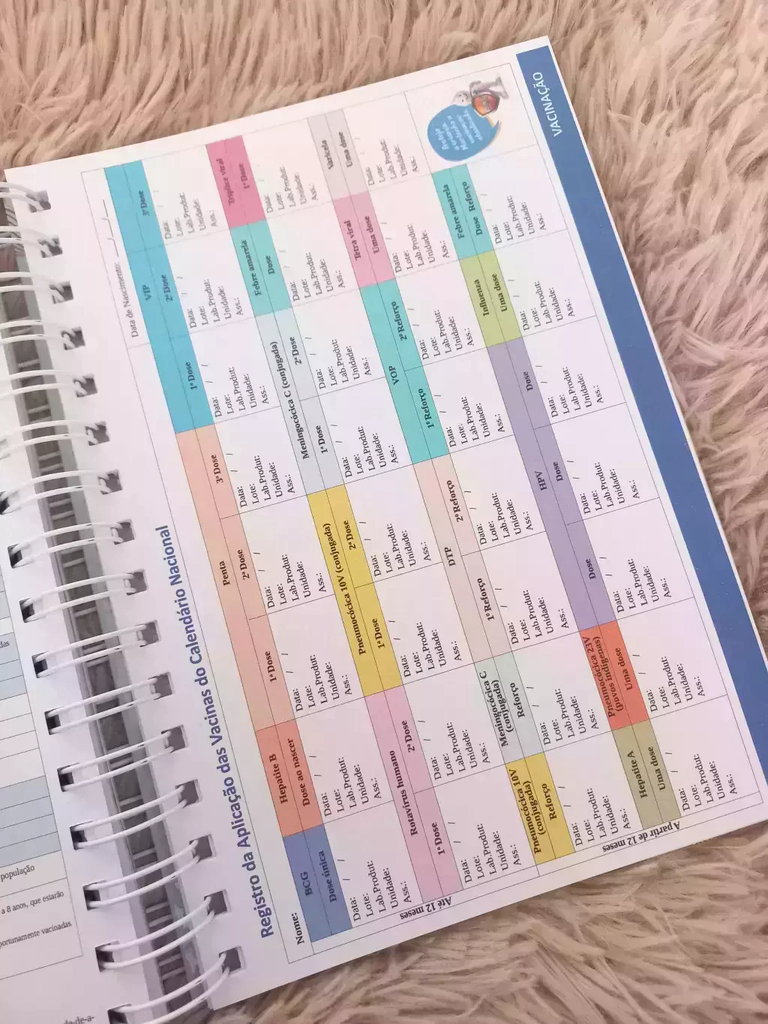 das
população
a 8 anos, que estarão
portunamente vacinadas
de-a-
Registro da Aplicação das Vacinas do Calendário Nacional
Nome: Data de Nascimento: __/__
Até 12 meses
BCG Hepatite B Penta VIP
Dose única Dose ao nascer 1ª Dose 2ª Dose 3ª Dose 1ª Dose 2ª Dose 3ª Dose
Data: / Data: / Data: / Data: / Data: / Data: / Data: / Data: /
Lote: Lote: Lote: Lote: Lote: Lote: Lote: Lote:
Lab.Produt: Lab.Produt: Lab.Produt: Lab.Produt: Lab.Produt: Lab.Produt: Lab.Produt: Lab.Produt:
Unidade: Unidade: Unidade: Unidade: Unidade: Unidade: Unidade: Unidade:
Ass.: Ass.: Ass.: Ass.: Ass.: Ass.: Ass.: Ass.:
Rotavírus humano Pneumocócica 10V (conjugada) Meningocócica C (conjugada) Febre amarela Tríplice viral
1ª Dose 2ª Dose 1ª Dose 2ª Dose 1ª Dose 2ª Dose Dose 1ª Dose
Data: / Data: / Data: / Data: / Data: / Data: / Data: / Data: /
Lote: Lote: Lote: Lote: Lote: Lote: Lote: Lote:
Lab.Produt: Lab.Produt: Lab.Produt: Lab.Produt: Lab.Produt: Lab.Produt: Lab.Produt: Lab.Produt:
Unidade: Unidade: Unidade: Unidade: Unidade: Unidade: Unidade: Unidade:
Ass.: Ass.: Ass.: Ass.: Ass.: Ass.: Ass.: Ass.:
A partir de 12 meses
Pneumocócica 10V (conjugada) Meningocócica C (conjugada) DTP VOP Tetra viral Varicela
Reforço Reforço 1º Reforço 2º Reforço 1º Reforço 2º Reforço Uma dose Uma dose
Data: / Data: / Data: / Data: / Data: / Data: / Data: / Data: /
Lote: Lote: Lote: Lote: Lote: Lote: Lote: Lote:
Lab.Produt: Lab.Produt: Lab.Produt: Lab.Produt: Lab.Produt: Lab.Produt: Lab.Produt: Lab.Produt:
Unidade: Unidade: Unidade: Unidade: Unidade: Unidade: Unidade: Unidade:
Ass.: Ass.: Ass.: Ass.: Ass.: Ass.: Ass.: Ass.:
Hepatite A Pneumocócica 23V (povos indígenas) HPV Influenza Febre amarela
Uma dose Uma dose Dose Dose Dose Uma dose Dose Reforço
Data: / Data: / Data: / Data: / Data: / Data: / Data: /
Lote: Lote: Lote: Lote: Lote: Lote: Lote:
Lab.Produt: Lab.Produt: Lab.Produt: Lab.Produt: Lab.Produt: Lab.Produt: Lab.Produt:
Unidade: Unidade: Unidade: Unidade: Unidade: Unidade: Unidade:
Ass.: Ass.: Ass.: Ass.: Ass.: Ass.: Ass.:
VACINAÇÃO